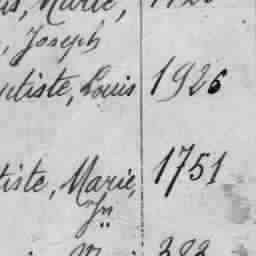 is, Marie,
, Joseph
ptiste, Louis 1926
tiste, Marie, 1751
Jn
383